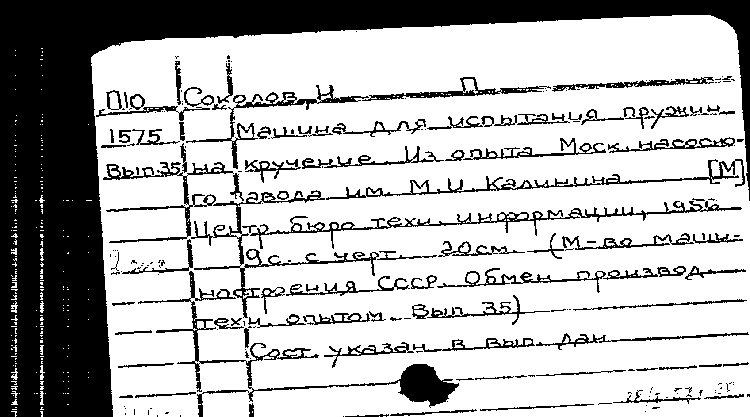 П10 Соколов, Н П
1575 Машина для испытания пружин
Вып.35 на кручение. Из опыта Моск. насосно-
го завода им. М.И. Калинина [М]
Центр. бюро техн. информации, 1956
2 экз 9с. с черт. 20см. (М-во маши-
ностроения СССР. Обмен производ.-
техн. опытом. Вып. 35)
Сост. указан в вып. дан